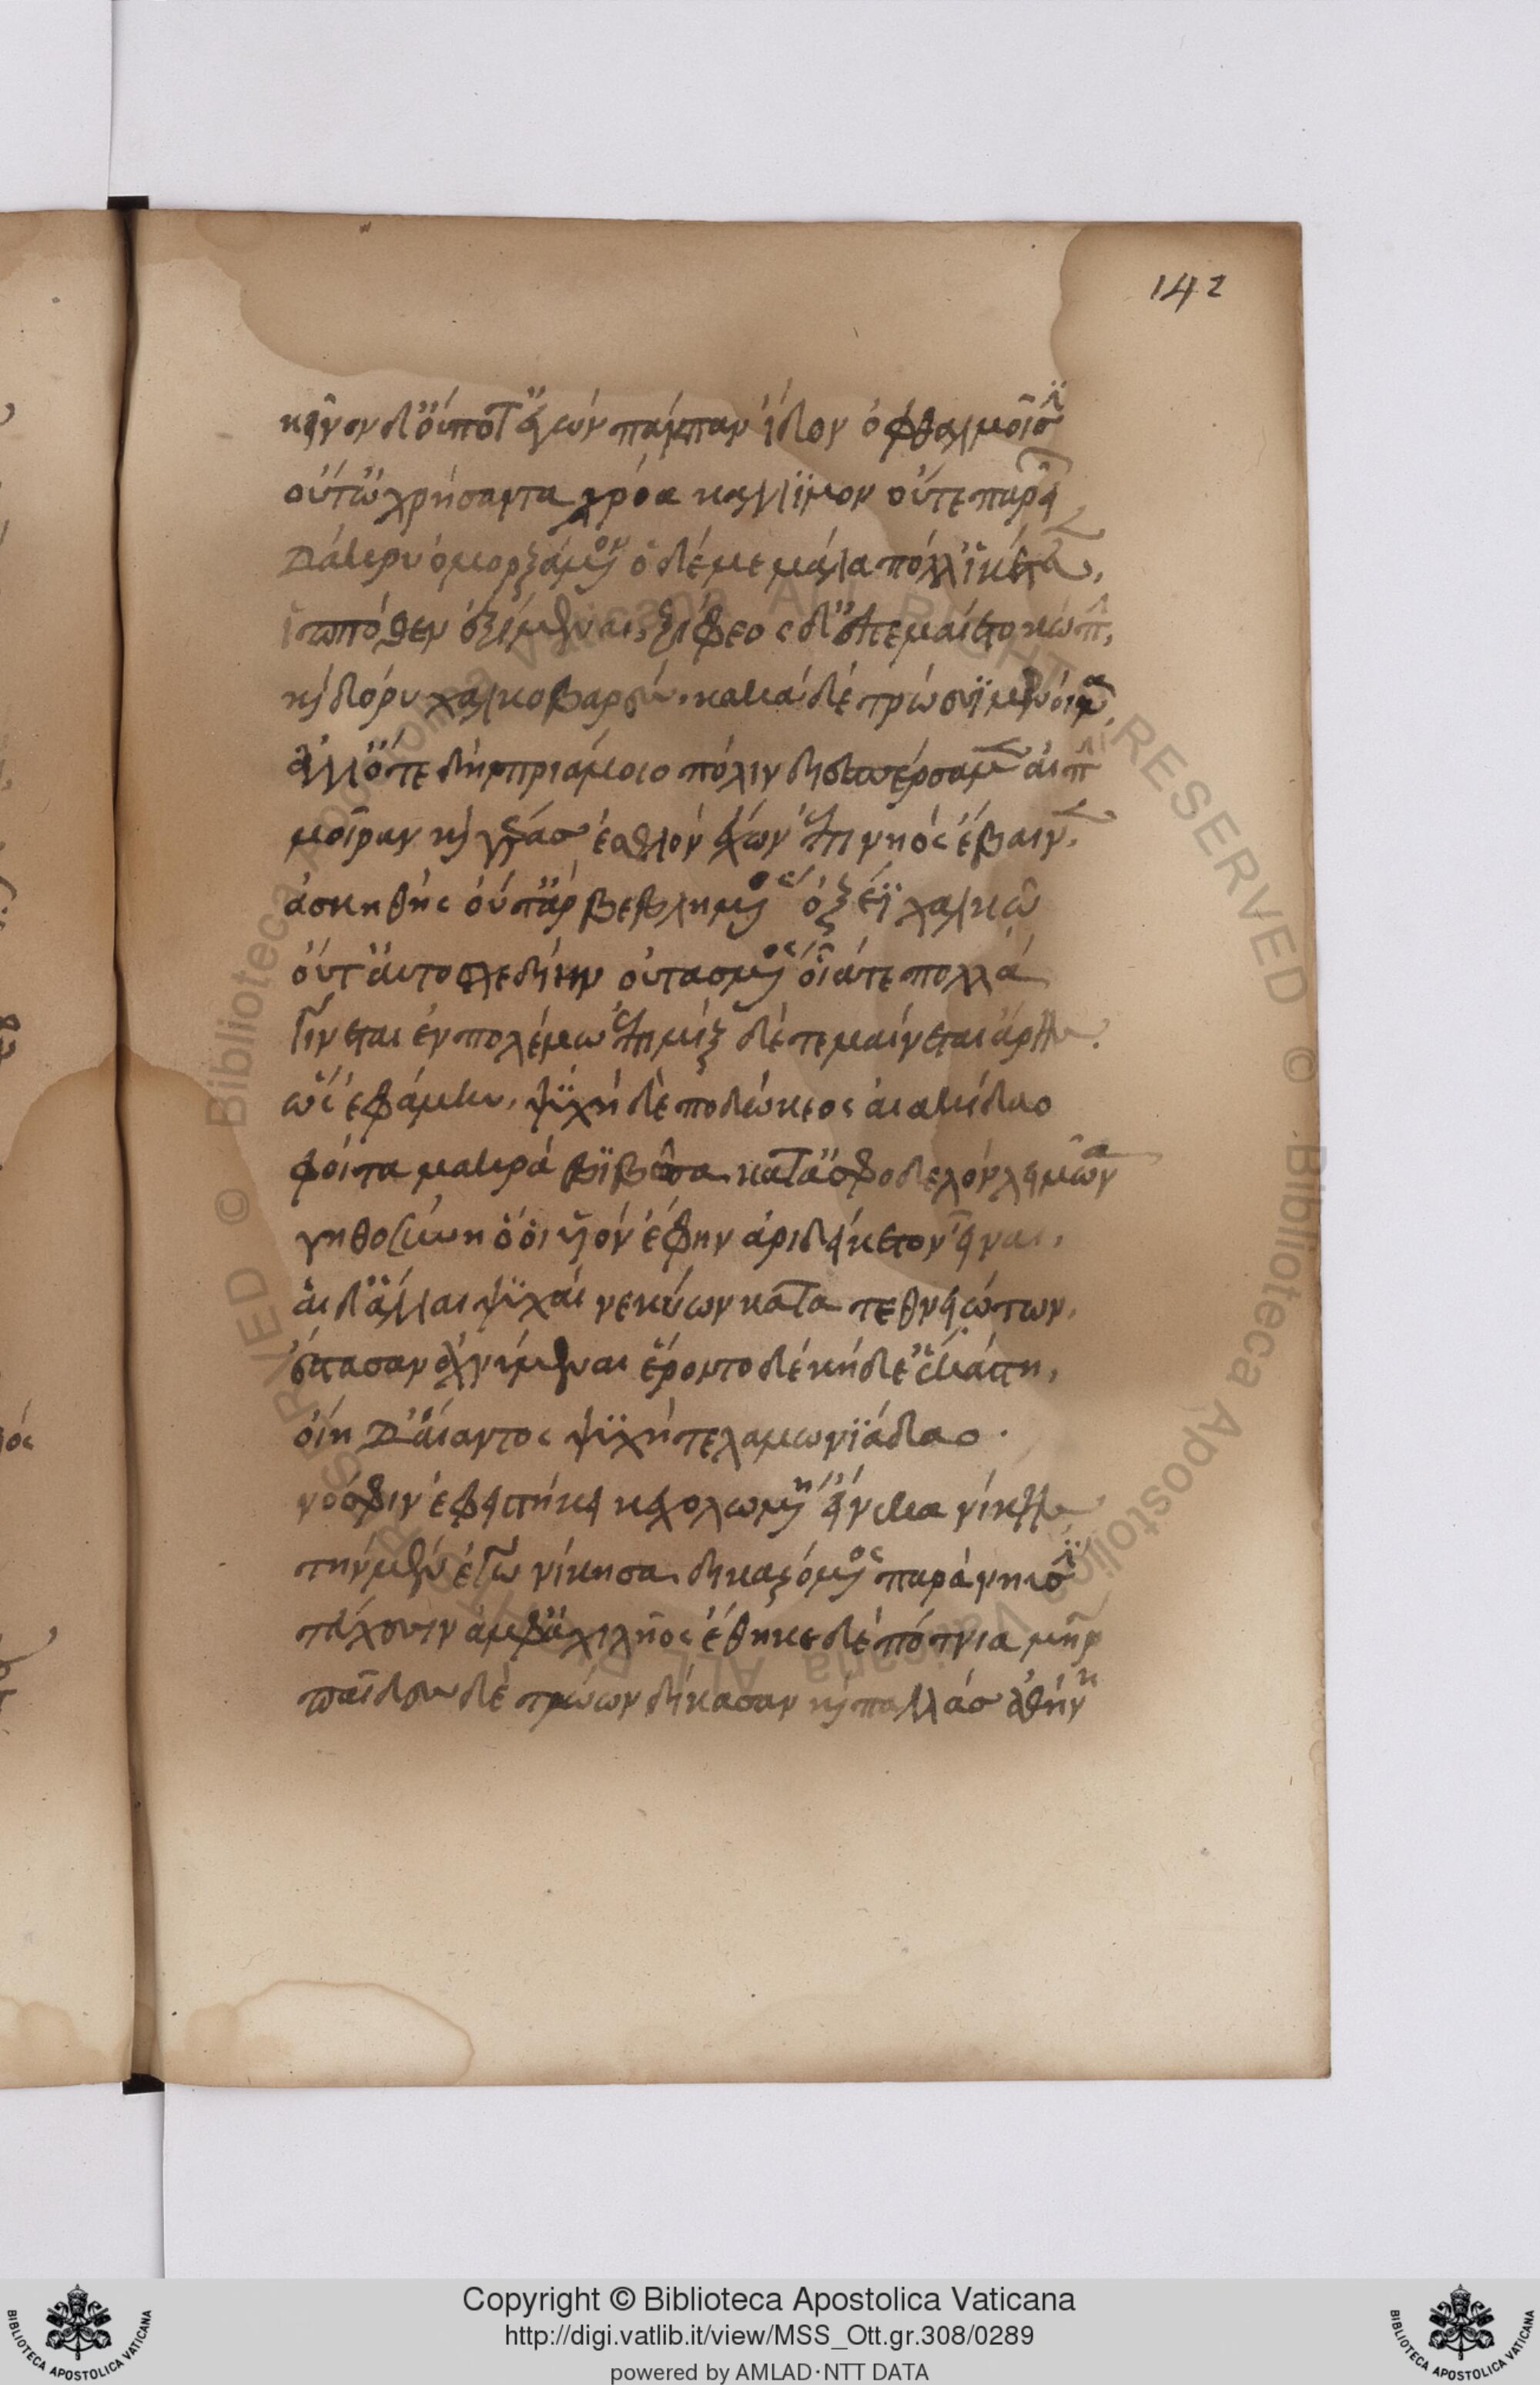 142
κεῖνον δ' οὔποτ' ἐγὼν πάμπαν ἴδον ὀφθαλμοῖσϊν
οὔτ' ὠχρήσαντα χρόα κάλλϊμον οὔτε παρειῶν
δάκρυ ὀμορξάμενον ὁ δέ με μάλα πόλλ' ἱκέτευεν,
ἱππόθεν ἐξίμεναι, ξίφεος δ' ἐπεμαίετο κώπην,
καὶ δόρυ χαλκοβαρές. κακὰ δὲ τρώεσσϊ μενοίνα,
ἀλλ' ὅτε δὴ πριάμοιο πόλιν διεπέρσαμεν αἰπὴν
μοῖραν καὶ γέρας ἐσθλὸν ἔχων ἐπὶ νηὸς ἔβαινεν.
ἀσκηθὴς οὔτ' ἂρ βεβλημένος ὀξέϊ χαλκῶ
οὔτ' αὐτοσχεδίην οὐτασμένος οἷά τε πολλὰ
γίνεται ἐν πολέμω ἐπιμὶξ δέ τε μαίνεται ἄρης.
ὣς ἐφάμην, ψϋχὴ δὲ ποδώκεος αἰακίδαο
φοίτα μακρὰ βϊβᾶσα κατ' ἀσφοδελὸν λειμῶνα
γηθοσύνη ὅ οἱ υἱὸν ἔφην ἀριδείκετον εἶναι,
αἱ δ' ἄλλαι ψϋχαὶ νεκύων κατα τεθνειώτων,
ἕστασαν ἀχνύμεναι εἴροντο δὲ κήδε' ἑκάστη,
οἴη δ' αἴαντος ψϋχὴ τελαμωνϊάδαο.
νόσφιν ἐφειστήκει κεχολωμένη εἵνεκα νίκης
τήν μιν ἐγὼ νίκησα δικαζόμενος παρὰ νηυσϊν
τεύχεσιν ἀμφ' ἀχιλῆος ἔθηκε δὲ πότνια μήτηρ
παῖδες δὲ τρώων δίκασαν καὶ παλλὰς ἀθήνη
Copyright © Biblioteca Apostolica Vaticana
http://digi.vatlib.it/view/MSS_Ott.gr.308/0289
powered by AMLAD·NTT DATA